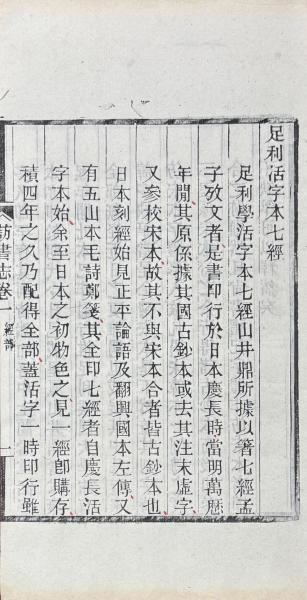 足利活字本七經
足利學活字本七經山井鼎所據以箸七經孟
子攷文者是書印行於日本慶長時當明萬厯
年閒其原係據其國古鈔本或去其注末虛字
又參校宋本故其不與宋本合者皆古鈔本也
日本刻經始見正平論語及翻興國本左傳又
有五山本毛詩鄭箋其全印七經者自慶長活
字本始余至日本之初物色之見一經卽購存
積四年之久乃配得全部蓋活字一時印行雖
訪書志卷一 經部 一